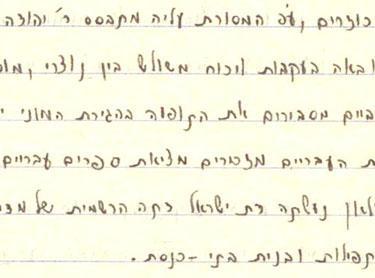 כוזרים, עפ המסורת עליה מתבסס ר' יהודה
ובאה בעקבות ויכוח משולש בין נוצרי, מוס
ביים מסבירים את התופעה בהגירת המוני י
ת העבריים מזכירים מציאת ספרים עבריים
לאון נעשקה דת ישראל דתה הרשמית של מד
קהילות ובנית בתי-כנסת.